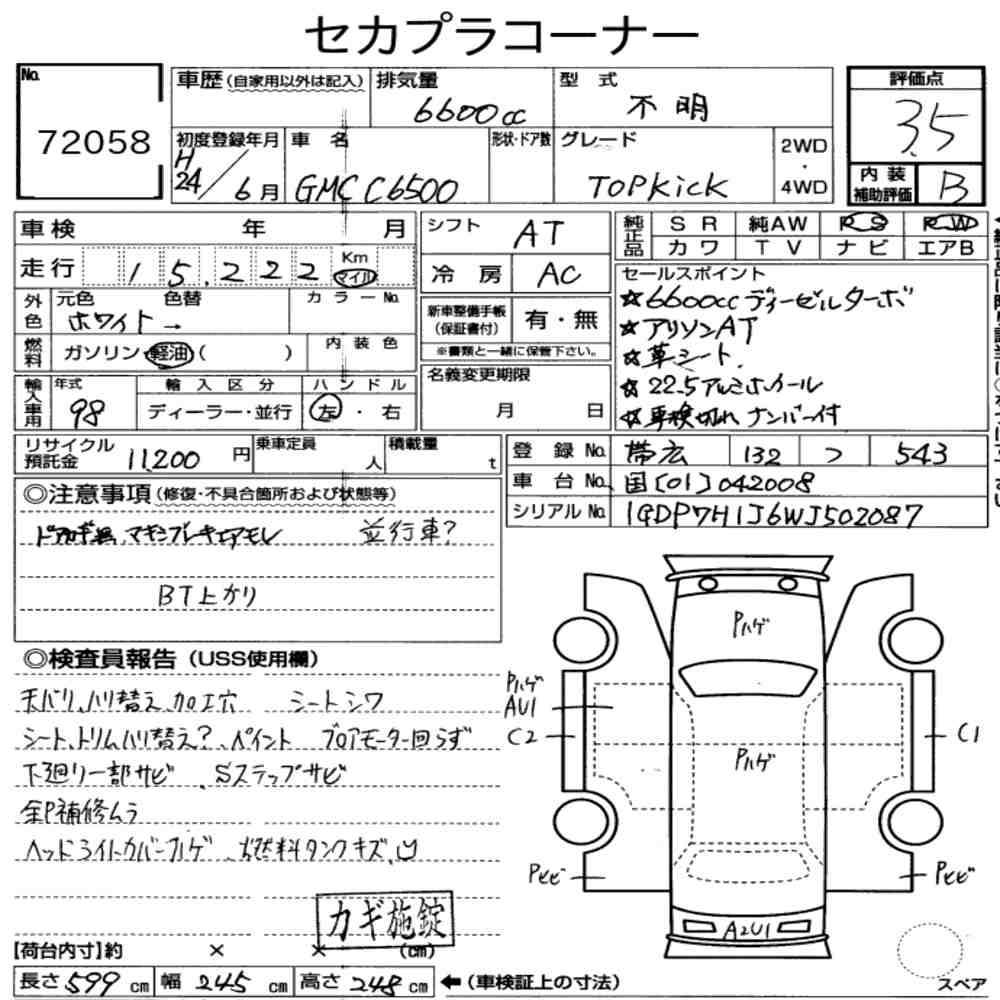 セカプラコーナー
No. 72058
車歴(自家用以外は記入) 排気量 6600cc 型式 不明
評価点 3.5
初度登録年月 H24/6月 車名 GMC C6500 形状・ドア数 グレード TOPKICK 2WD・4WD
内装補助評価 B
車検 年 月
走行 15,222 Km マイル
外色 元色 ホワイト→ 色替 カラーNo.
燃料 ガソリン・軽油( ) 内装色
輸入車用 年式 98 輸入区分 ディーラー・並行 ハンドル 左・右
シフト AT
冷房 AC
新車整備手帳(保証書付) 有・無
※書類と一緒に保管下さい。
名義変更期限 月 日
純正品 SR 純AW PS PW
カワ TV ナビ エアB
セールスポイント
☆6600ccディーゼルターボ
☆アリソンAT
☆革シート.
☆22.5アルミホイール
☆車検切れ ナンバー付
リサイクル預託金 11,200円 乗車定員 人 積載量 t
登録No. 帯広 132 つ 543
車台No. 国[01]042008
シリアルNo. 1GDP7H1J6WJ502087
◎注意事項(修復・不具合箇所および状態等)
ドアカギ無 マキシブレーキエアモレ 並行車?
BT上がり
◎検査員報告(USS使用欄)
天バリ、ハリ替え、加工穴 シートシワ
シート、トリムハリ替え?、ペイント ブロアモーター回らず
下廻り一部サビ、Sステップサビ
全P補修ムラ
ヘッドライトカバーハゲ、燃料タンクキズ、U
カギ施錠
【荷台内寸】約 × × (cm)
長さ 599 cm 幅 245 cm 高さ 248 cm ←(車検証上の寸法)
Pハゲ
Pハゲ
AU1
C2
Pハゲ
C1
Pヒビ
Pヒビ
A2U1
スペア